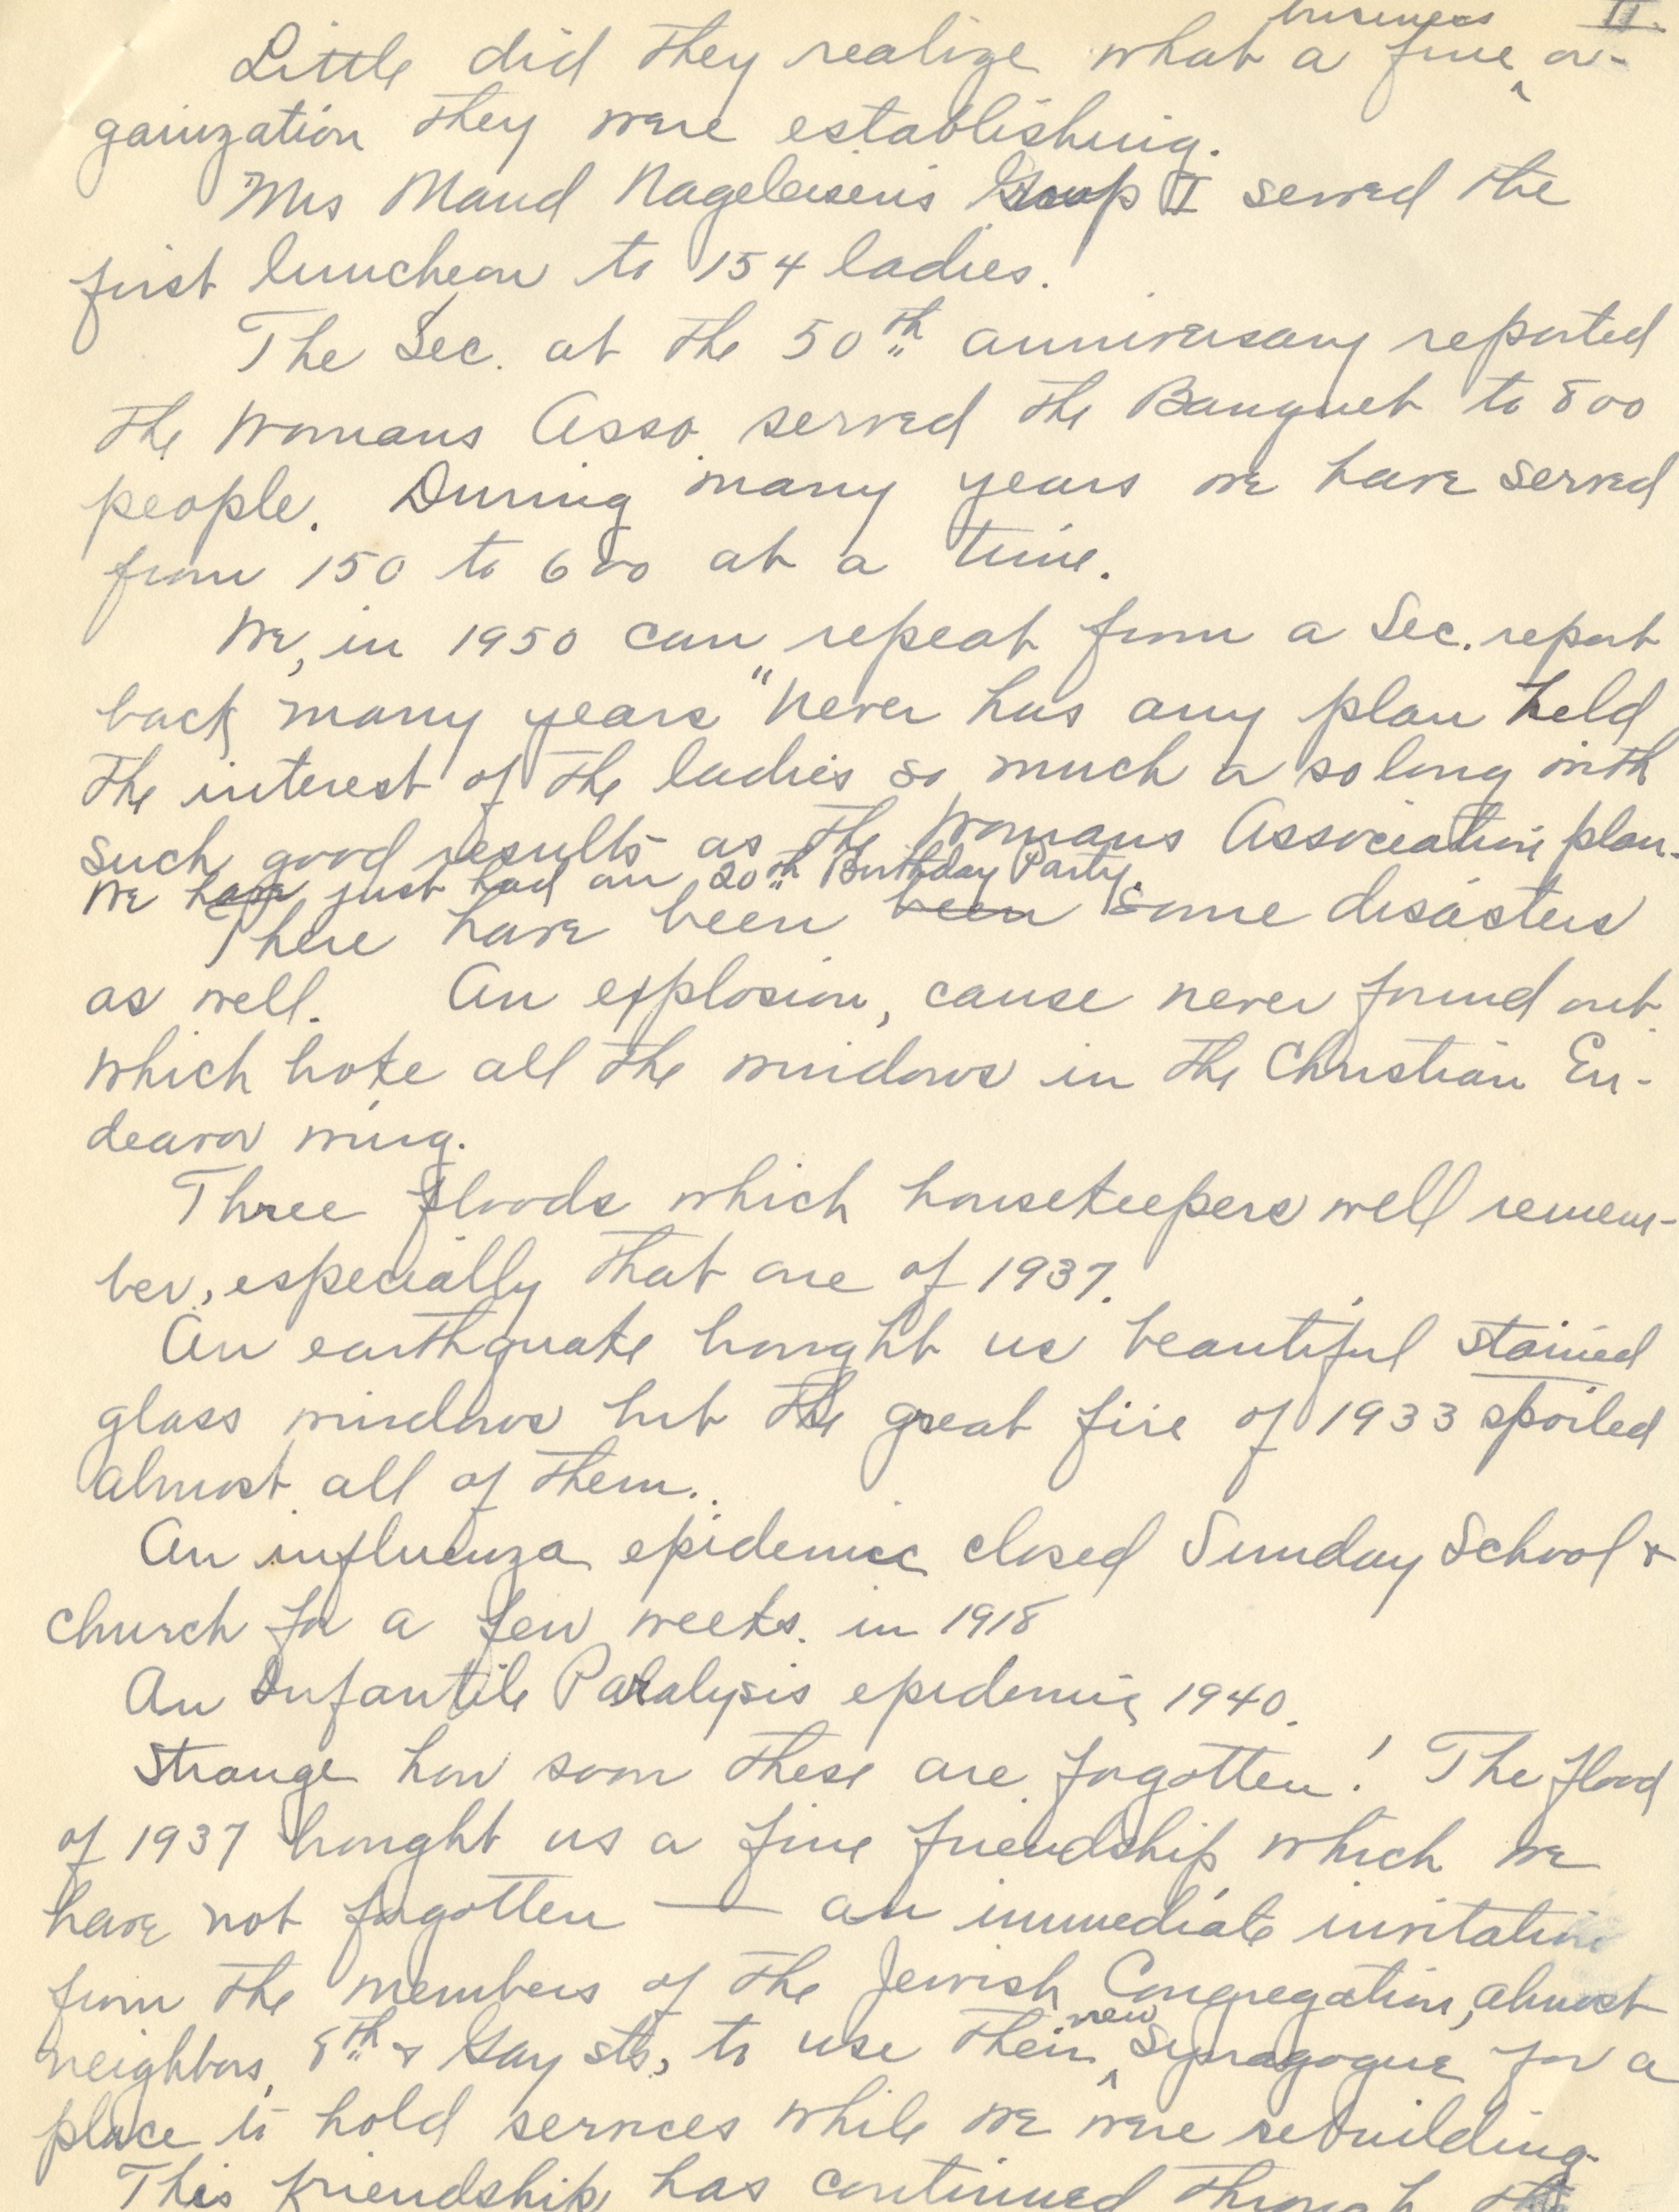 II.
Little did they realize what a fine ^business or-
ganization they were establishing.
Mrs Maud Nageleisen's Group I served the
first luncheon to 154 ladies.
The Sec. at the 50th anniversary reported
the Womans Asso. served the Banquet to 800
people. During many years we have served
from 150 to 600 at a time.
We, in 1950 can repeat from a Sec. report
back many years "Never has any plan held
the interest of the ladies so much or so long with
such good results as the Womans Association plan.
We have just had our 20th Birthday Party.
There have been been some disasters
as well. An explosion, cause never found out
which broke all the windows in the Christian En-
deavor wing.
Three floods which housekeepers well remem-
ber, especially that one of 1937.
An earthquake brought us beautiful stained
glass windows but the great fire of 1933 spoiled
almost all of them.
An influenza epidemic closed Sunday School &
church for a few weeks. in 1918
An Infantile Paralysis epidemic, 1940.
Strange how soon these are forgotten! The flood
of 1937 brought us a fine friendship which we
have not forgotten — an immediate invitation
from the members of the Jewish Congregation, almost
neighbors, 8th & Gay sts, to use their ^new Synagogue for a
place to hold services while we were rebuilding.
This friendship has continued through the